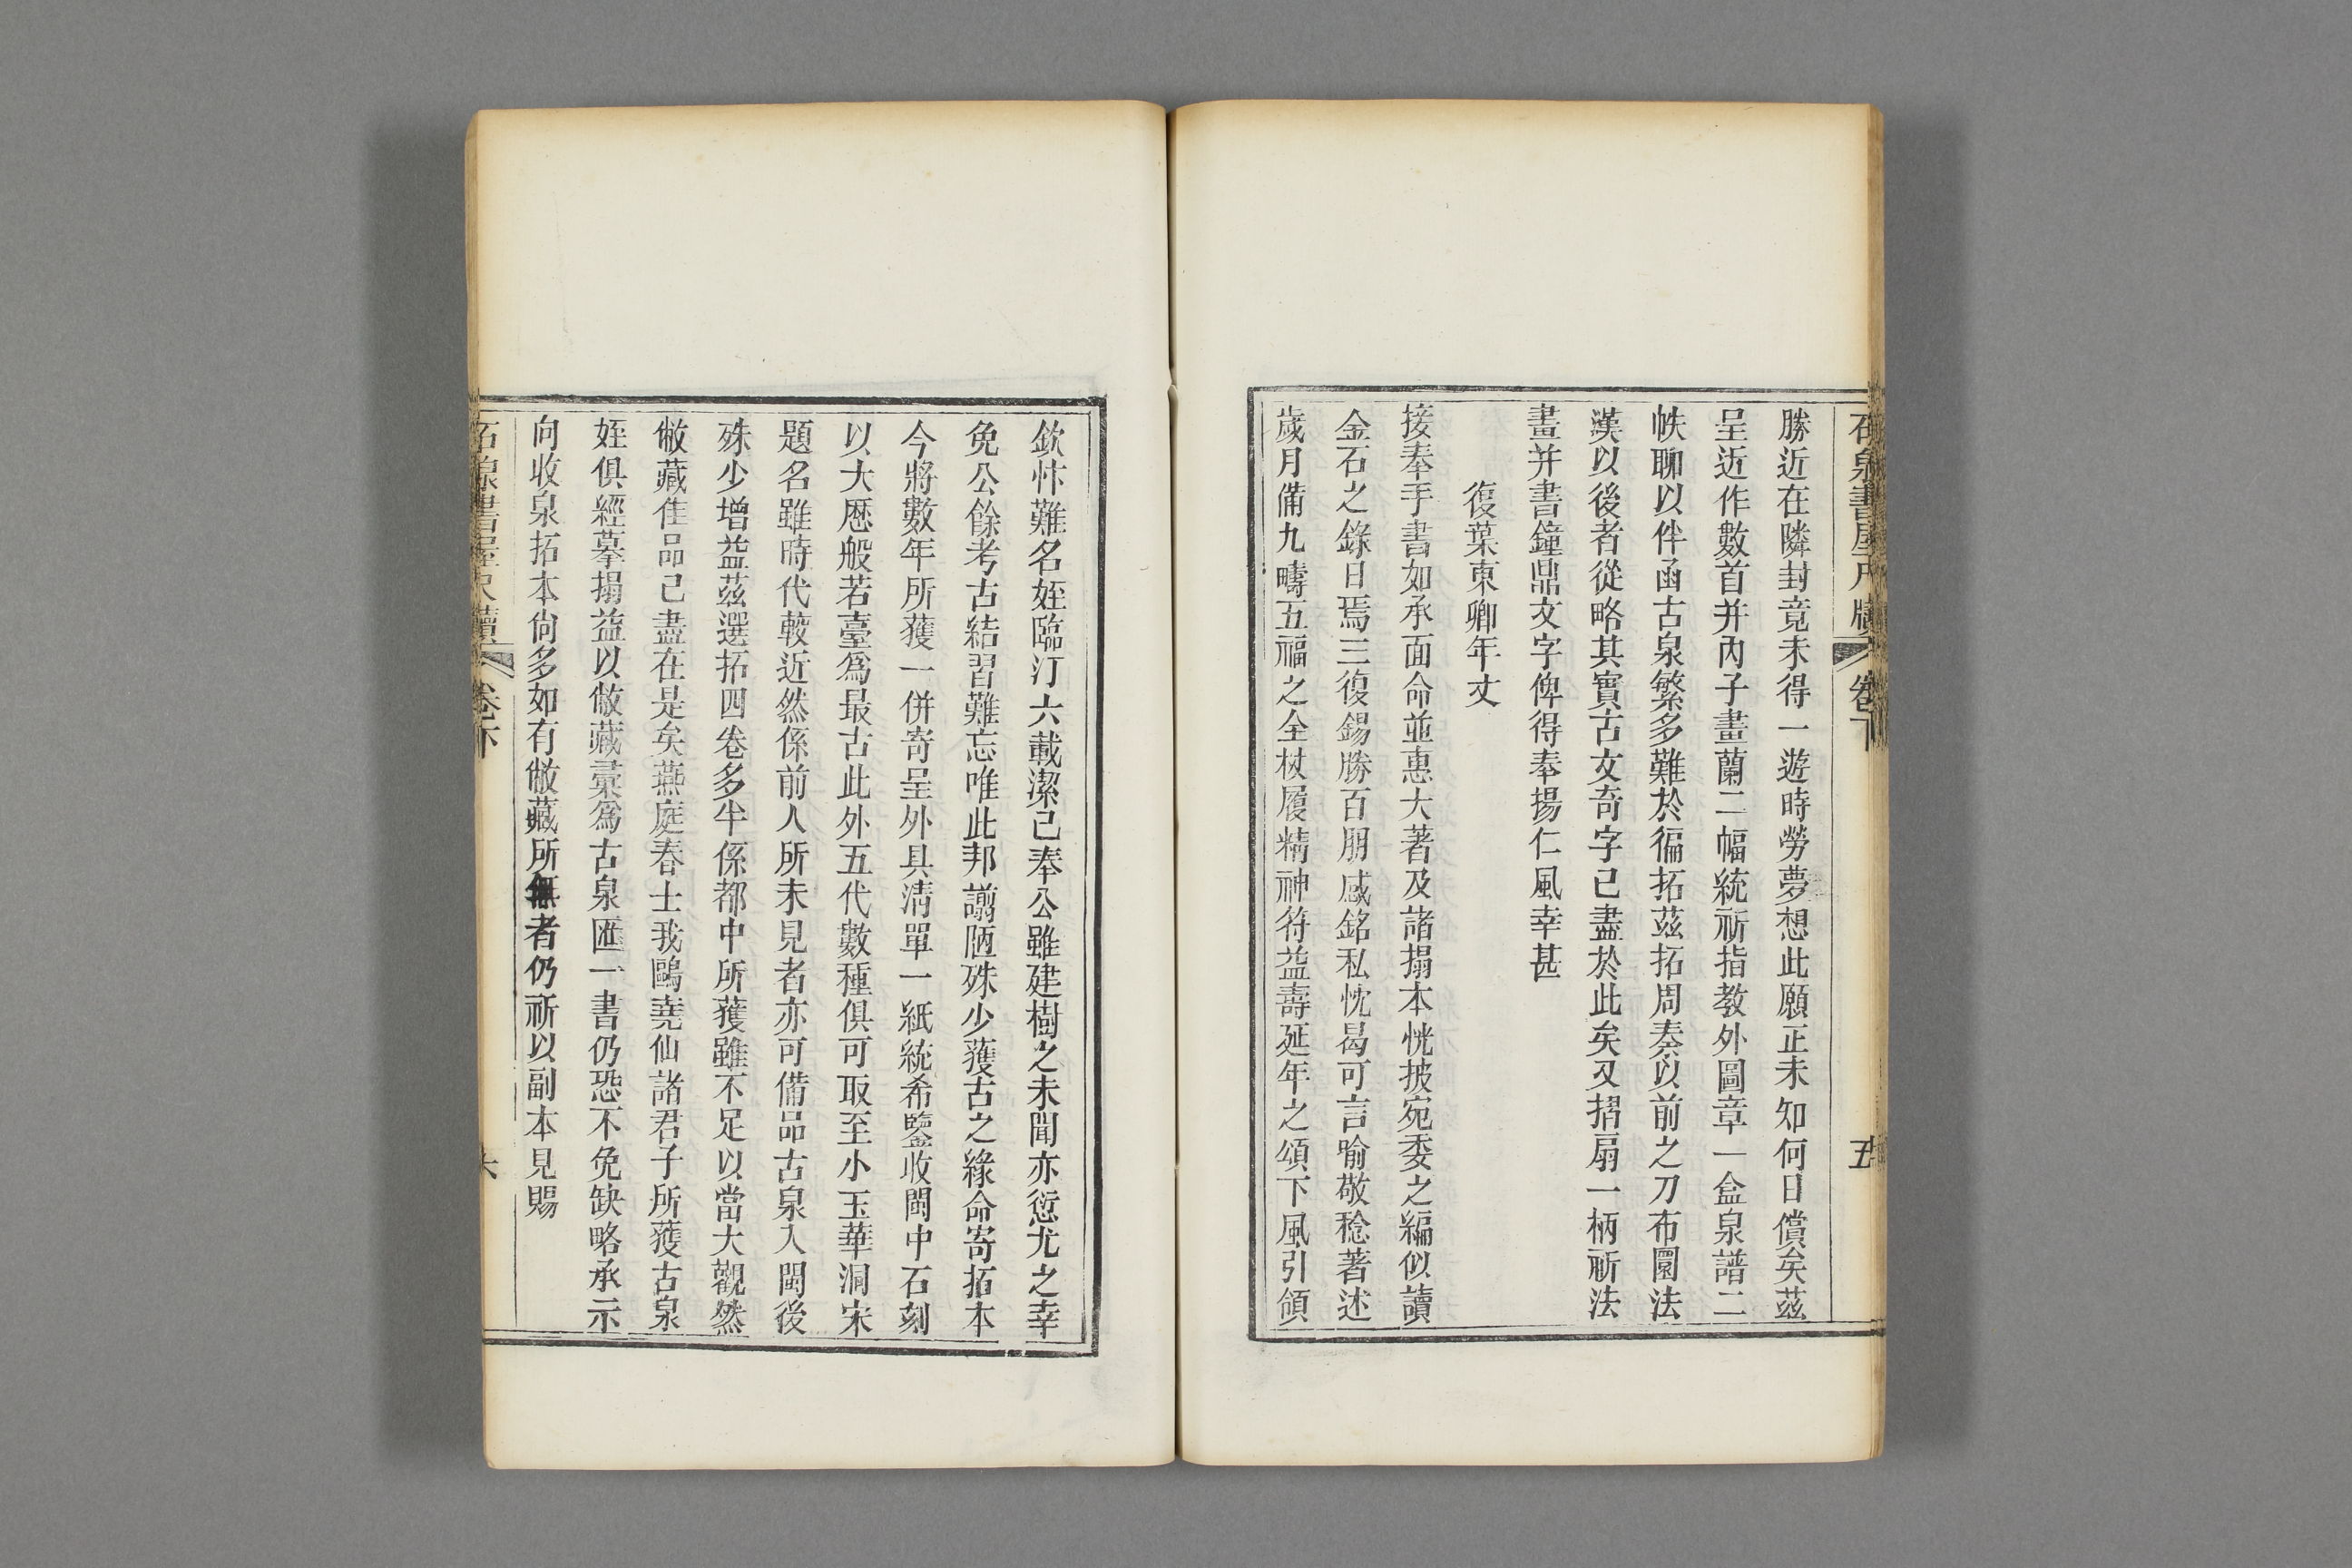 石泉書屋尺牘 卷下 五
勝近在隣封竟未得一遊時勞夢想此願正未知何日償矣茲
呈近作數首并內子畫蘭二幅統祈指教外圖章一盒泉譜二
帙聊以伴函古泉繁多難於徧拓茲拓周秦以前之刀布圜法
漢以後者從略其實古文奇字已盡於此矣又摺扇一柄祈法
畫并書鐘鼎文字俾得奉揚仁風幸甚
復葉東卿年丈
接奉手書如承面命並惠大著及諸搨本恍披宛委之編似讀
金石之錄日焉三復錫勝百朋感銘私忱曷可言喻敬稔著述
歲月備九疇五福之全杖履精神符益壽延年之頌下風引領
欽忭難名姪臨汀六載潔己奉公雖建樹之未聞亦愆尤之幸
免公餘考古結習難忘唯此邦譾陋殊少獲古之緣命寄拓本
今將數年所獲一併寄呈外具清單一紙統希鑒收閩中石刻
以大厯般若臺爲最古此外五代數種俱可取至小玉華洞宋
題名雖時代較近然係前人所未見者亦可備品古泉入閩後
殊少增益茲選拓四卷多半係都中所獲雖不足以當大觀然
敝藏隹品已盡在是矣燕庭春士我鷗堯仙諸君子所獲古泉
姪俱經摹搨益以敝藏彚爲古泉匯一書仍恐不免缺略承示
向收泉拓本尙多如有敝藏所無者仍祈以副本見賜
石泉書屋尺牘 卷下 六